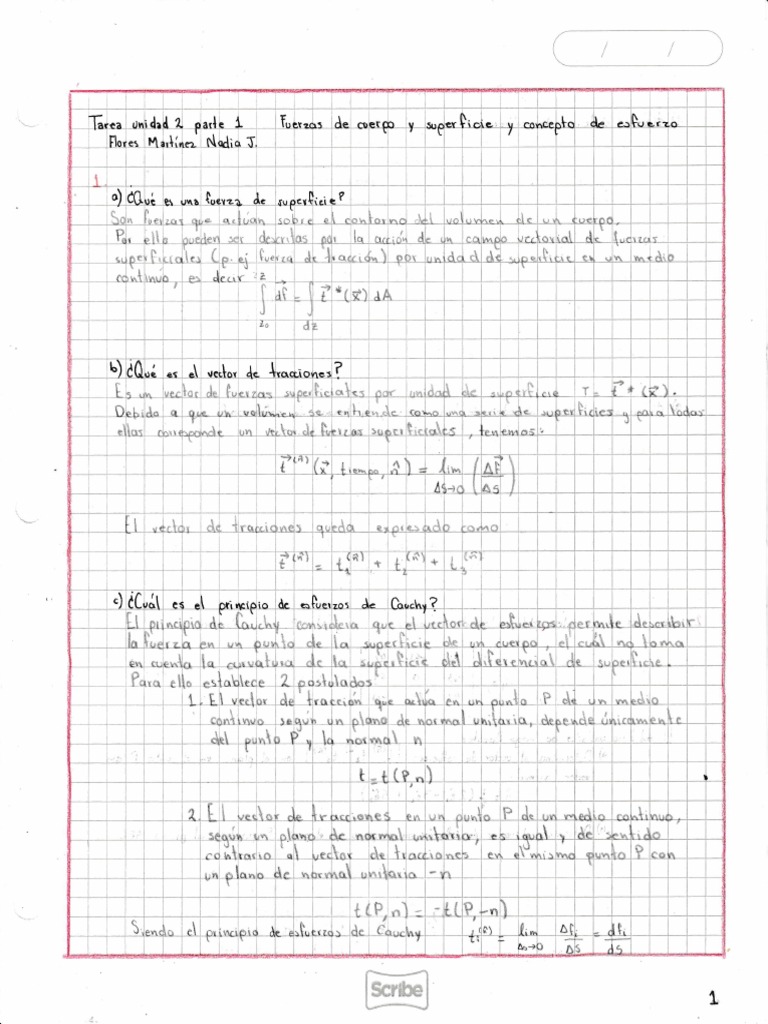 / /
Tarea unidad 2 parte 1 Fuerzas de cuerpo y superficie y concepto de esfuerzo
Flores Martínez Nadia J.
1.
a) ¿Qué es una fuerza de superficie?
Son fuerzas que actúan sobre el contorno del volumen de un cuerpo.
Por ello pueden ser descritas por la acción de un campo vectorial de fuerzas
superficiales (p. ej fuerza de tracción) por unidad de superficie en un medio
continuo, es decir:
∫_{z₀}^{z} d→f = ∫_{dz} →t*(→x) dA
b) ¿Qué es el vector de tracciones?
Es un vector de fuerzas superficiales por unidad de superficie T = →t*(→x).
Debido a que un volúmen se entiende como una serie de superficies y para todas
ellas corresponde un vector de fuerzas superficiales, tenemos:
→t^(n̂) (→x, tiempo, n̂) = lim_{ΔS→0} (Δ→F/ΔS)
El vector de tracciones queda expresado como
→t^(n̂) = t₁^(n̂) + t₂^(n̂) + t₃^(n̂)
c) ¿Cuál es el principio de esfuerzos de Cauchy?
El principio de Cauchy considera que el vector de esfuerzos permite describir
la fuerza en un punto de la superficie de un cuerpo, el cuál no toma
en cuenta la curvatura de la superficie del diferencial de superficie.
Para ello establece 2 postulados
1. El vector de tracción que actúa en un punto P de un medio
continuo según un plano de normal unitaria, depende únicamente
del punto P y la normal n
t = t(P,n)
2. El vector de tracciones en un punto P de un medio continuo,
según un plano de normal unitaria, es igual y de sentido
contrario al vector de tracciones en el mismo punto P con
un plano de normal unitaria -n
t(P,n) = -t(P,-n)
Siendo el principio de esfuerzos de Cauchy tᵢ^(n̂) = lim_{Δs→0} Δfᵢ/ΔS = dfᵢ/dS
Scribe
1